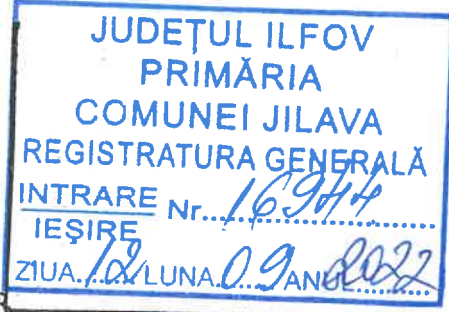 JUDEȚUL ILFOV
PRIMĂRIA
COMUNEI JILAVA
REGISTRATURA GENERALĂ
INTRARE Nr. 16944
IEȘIRE
ZIUA 12 LUNA 09 ANUL 2022